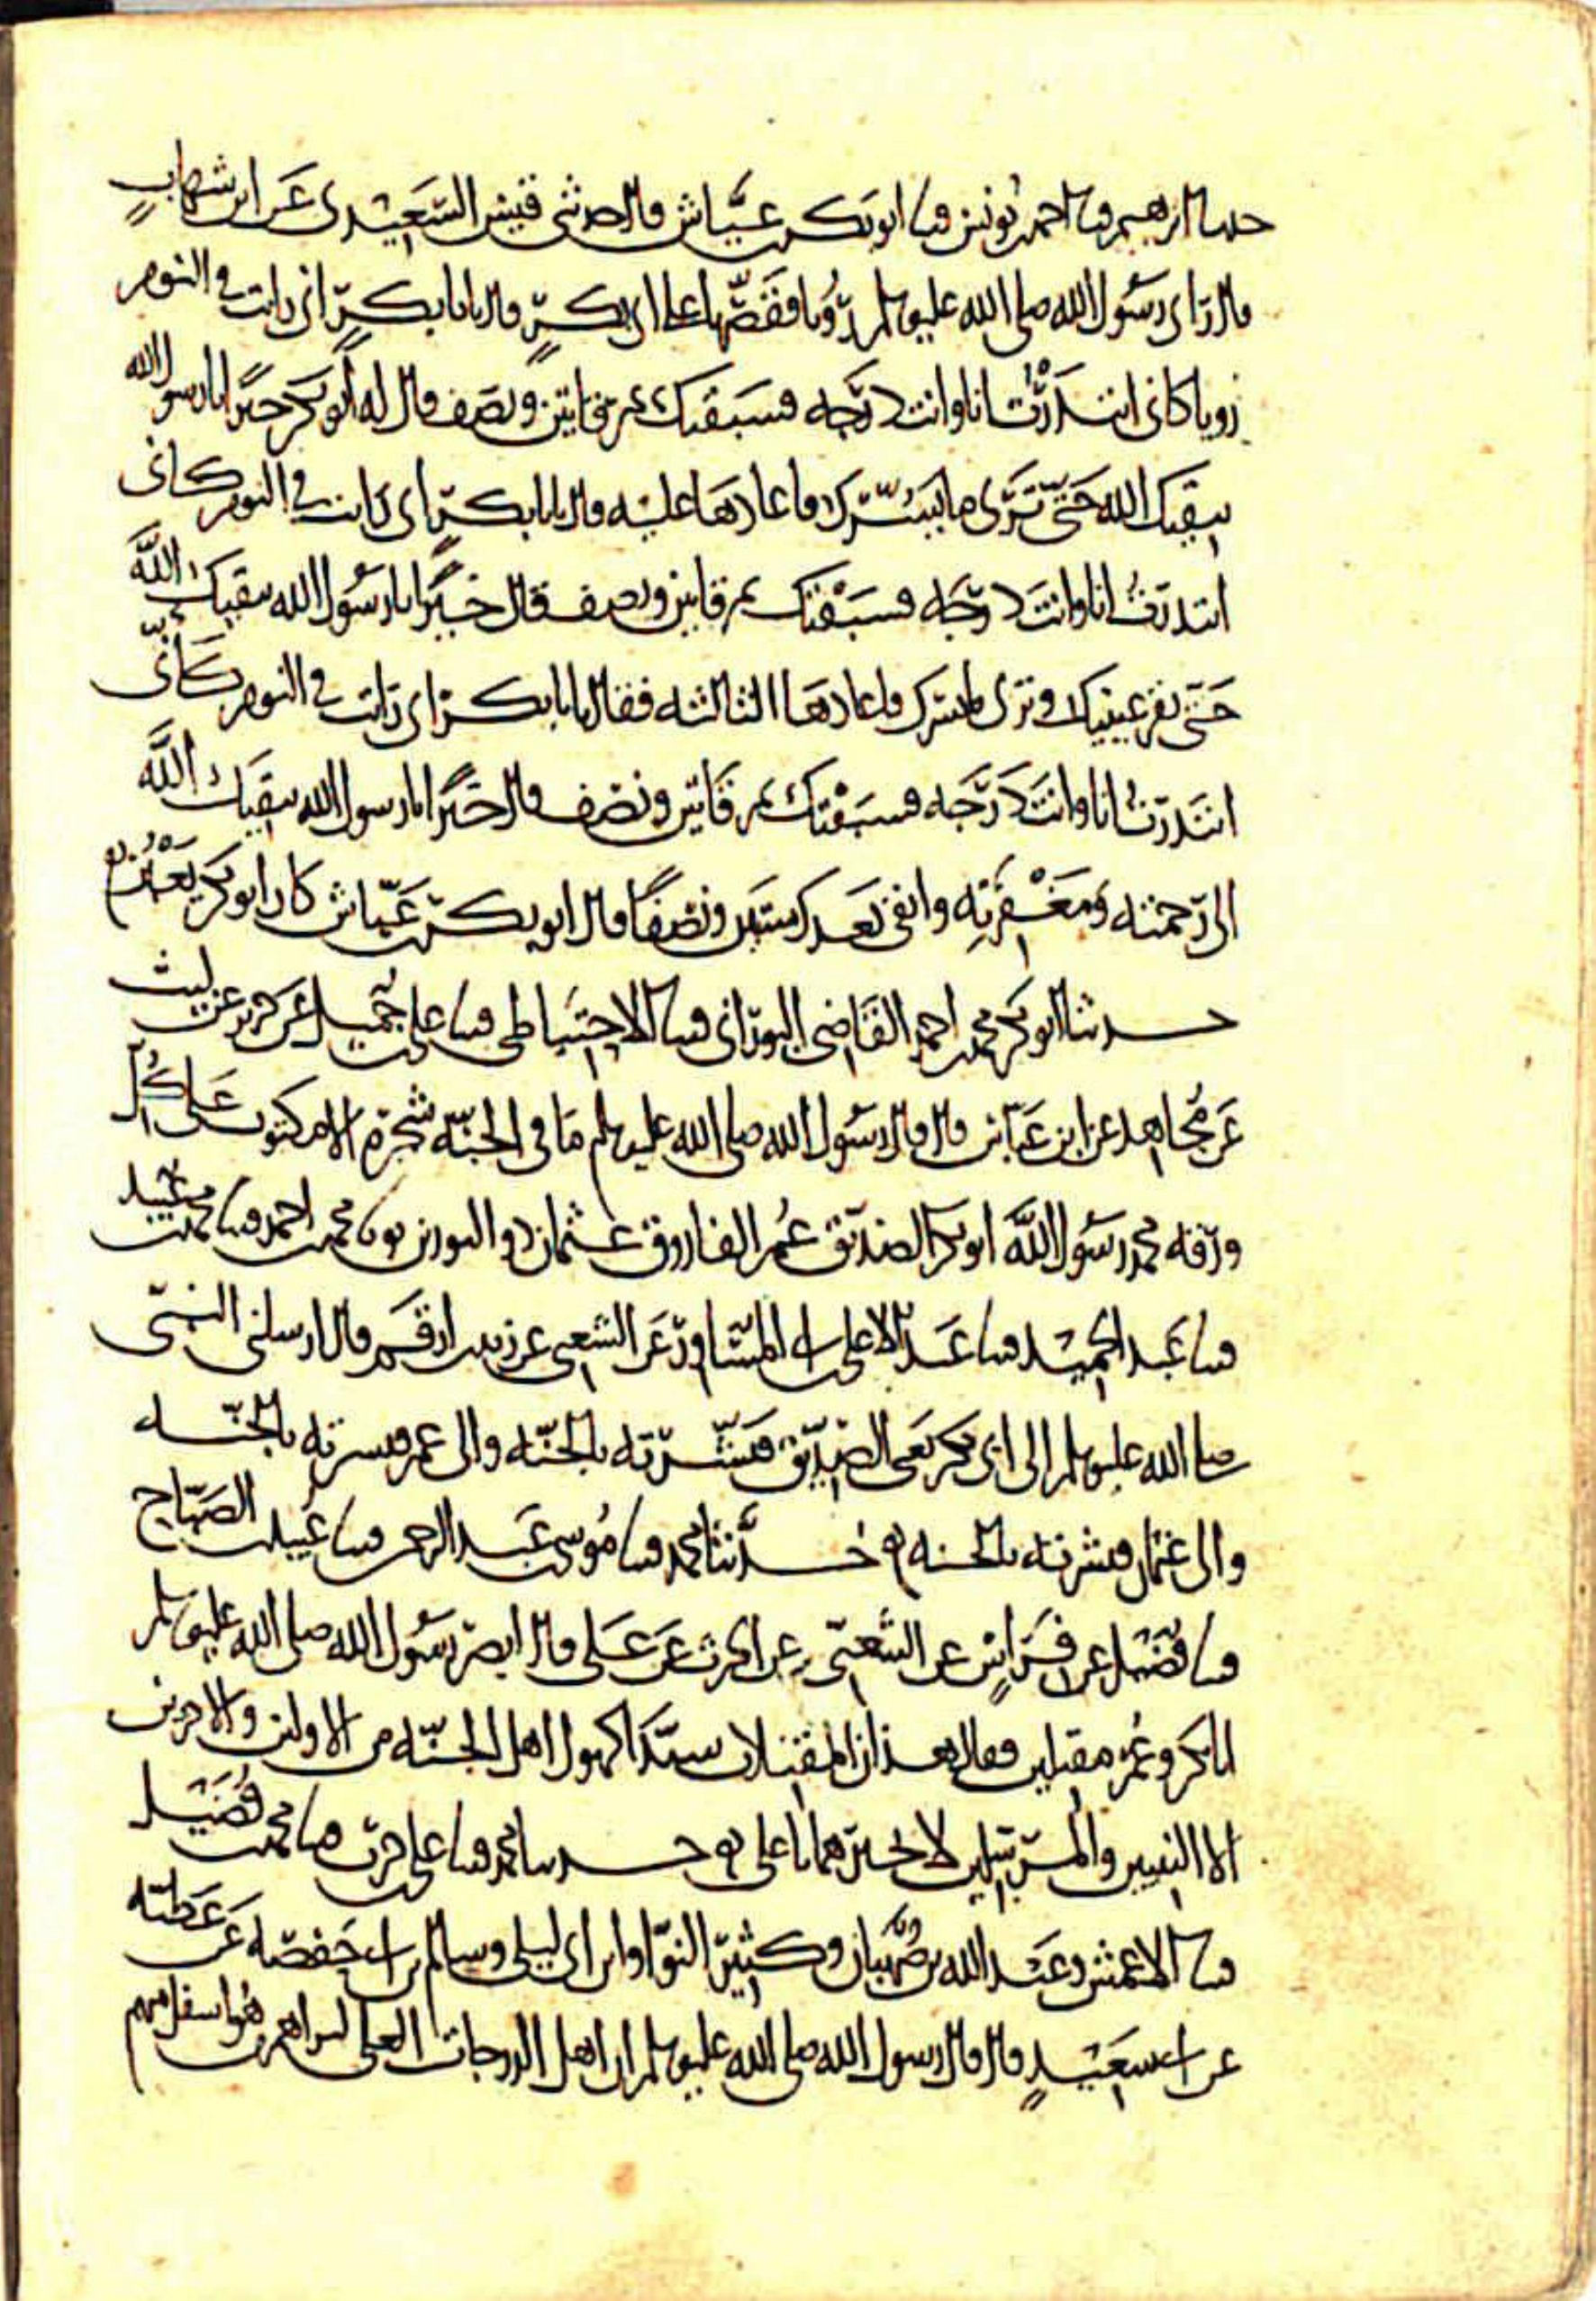 حدثنا ابرهيم قثنا احمد بن يونس قثنا ابو بكر بن عيّاش قال حدثنى قيس السَّعِيْدى عَن ابن شهابٍ
قال رَاى رسُول الله صلى الله عليه وسلم رُويا فقصَّها على ابى بكرٍ قال يابا بكرٍ انى رايت فى النوم
رويا كانى ابتدَرْتُ انا وانت دَرَجه فسبقتك بمرقاتين ونصف قال له ابو بكر خيرًا يارسول الله
يبقيك الله حَتَّى تَرَى ما يسُرّك فاعادهَا عليه قال يابا بكر انى رايت فى النوم كانى
ابتدرتُ انا وانتَ دَرَجه فسَبَقْتك بمرقاتين ونصف قال خيْرًا يارسُول الله يبقيك اللَّه
حَتى تقر عينيك وترى مايسرك فاعادهَا الثالثه فقال يابا بكر انى رَايت فى النوم كَانّى
ابتَدرتُ انا وانتَ دَرَجه فسَبَقْتك بمرقَاتين ونصْف قال خَيرًا يارسول الله يبقيكَ اللَّه
الى رَحمته وَمَغْفِرَتِه وابقى بَعدك سنتين ونصْفًا قال ابو بكر بن عَيَّاش كان ابو بكر
حدثنا ابو بكر محمد بن احمد القَاضِى البورَانى قثنا الاحتيَاطى قثنا على بن جَمِيل عَن جرير عن ليث
عَن مُجاهد عن ابن عَبَّاس قال قال رسُول الله صلى الله عليه وسلم مَا فى الجنّه شجَره الا مكتوب عَلى كُل
ورَقه محمد رسُول اللَّه ابو بكر الصدّيق عُمر الفاروق عثمان ذو النورين محمد بن احمد قثنا محمد بن عُبيد
قثنا عَبد الحميْد قثنا عَبد الاعلى بن ابى المسَاور عَن الشعبى عن زيد بن ارقَم قال ارسلنى النبىّ
صلى الله عليه وسلم الى ابى بكر يَعنى الصّدِّيق فَبَشّرته بالجنّه والى عمر فبشرته بالجنّه
والى عثمان فبشرته بالجنه حدَّثنا محمد قثنا مُوسى بن عَبد الرحمن قثنا عُبيد بن الصَبّاح
قثنا فُضَيل عن فِرَاسٍ عن الشَّعبىّ عن الحرث عَن عَلى قال ابصَر رسُول الله صلى الله عليه وسلم
ابا بكر وعُمر مقبلين فقال هذان المقبلان سيّدا كهول اهل الجنّه من الاولين والاخرين
الا النبيين والمرسلين لا تخبرهما ياعلى حدثنا محمد قثنا على بن حرب قثنا محمد بن فُضَيل
قثنا الاعمش وعَبد الله بن صُهْبَان وكثير النوّا وابن ابى ليلى وسالم بن ابى حَفصَه عَن عَطيّه
عن ابى سعيدٍ قال قال رسول الله صلى الله عليه وسلم ان اهل الدرجات العلى ليراهم من هُو اسفل منهم